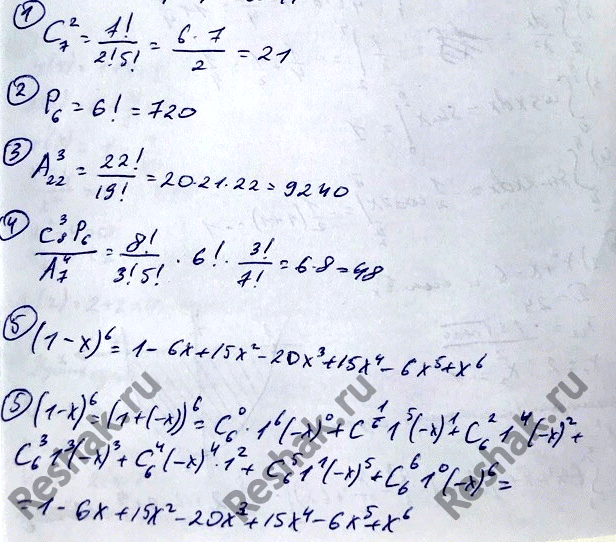 ① C₇² = 7!/2!5! = 6·7/2 = 21
② P₆ = 6! = 720
③ A₂₂³ = 22!/19! = 20·21·22 = 9240
④ C₈³P₆/A₇⁴ = 8!/3!5! · 6! · 3!/7! = 6·8 = 48
⑤ (1-x)⁶ = 1 - 6x + 15x² - 20x³ + 15x⁴ - 6x⁵ + x⁶
⑤ (1-x)⁶ = (1+(-x))⁶ = C₆⁰·1⁶(-x)⁰ + C₆¹1⁵(-x)¹ + C₆²1⁴(-x)² +
C₆³1³(-x)³ + C₆⁴(-x)⁴·1² + C₆⁵1¹(-x)⁵ + C₆⁶1⁰(-x)⁶ =
= 1 - 6x + 15x² - 20x³ + 15x⁴ - 6x⁵ + x⁶
Reshak.ru
Reshak.ru
Reshak.ru